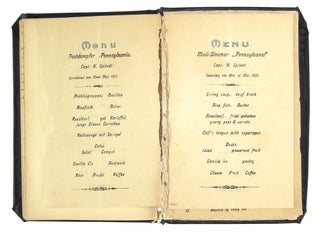 Menu
Postdampfer "Pennsylvania"
Capt. H. Spliedt
Frühlingssuppe, Bouillon
Blaufisch, Butter
Roastbeef, gebr. Kartoffel
junge Erbsen Carrotten
Kalbszunge mit Spargel
Enten
Salat Compot
Vanille Eis Backwerk
Käse Frucht Kaffee
MENU
Mail-Steamer „Pennsylvania"
Capt. H. Spliedt
Saturday the 18th. of May 1901.
Spring soup, beef broth
Blue fish, Butter
Roastbeef, fried potatoes
young peas & carrots
Calf's tongue with asparagus
Ducks
salad preserved fruit
Vanilla ice pastry
Cheese Fruit Coffee